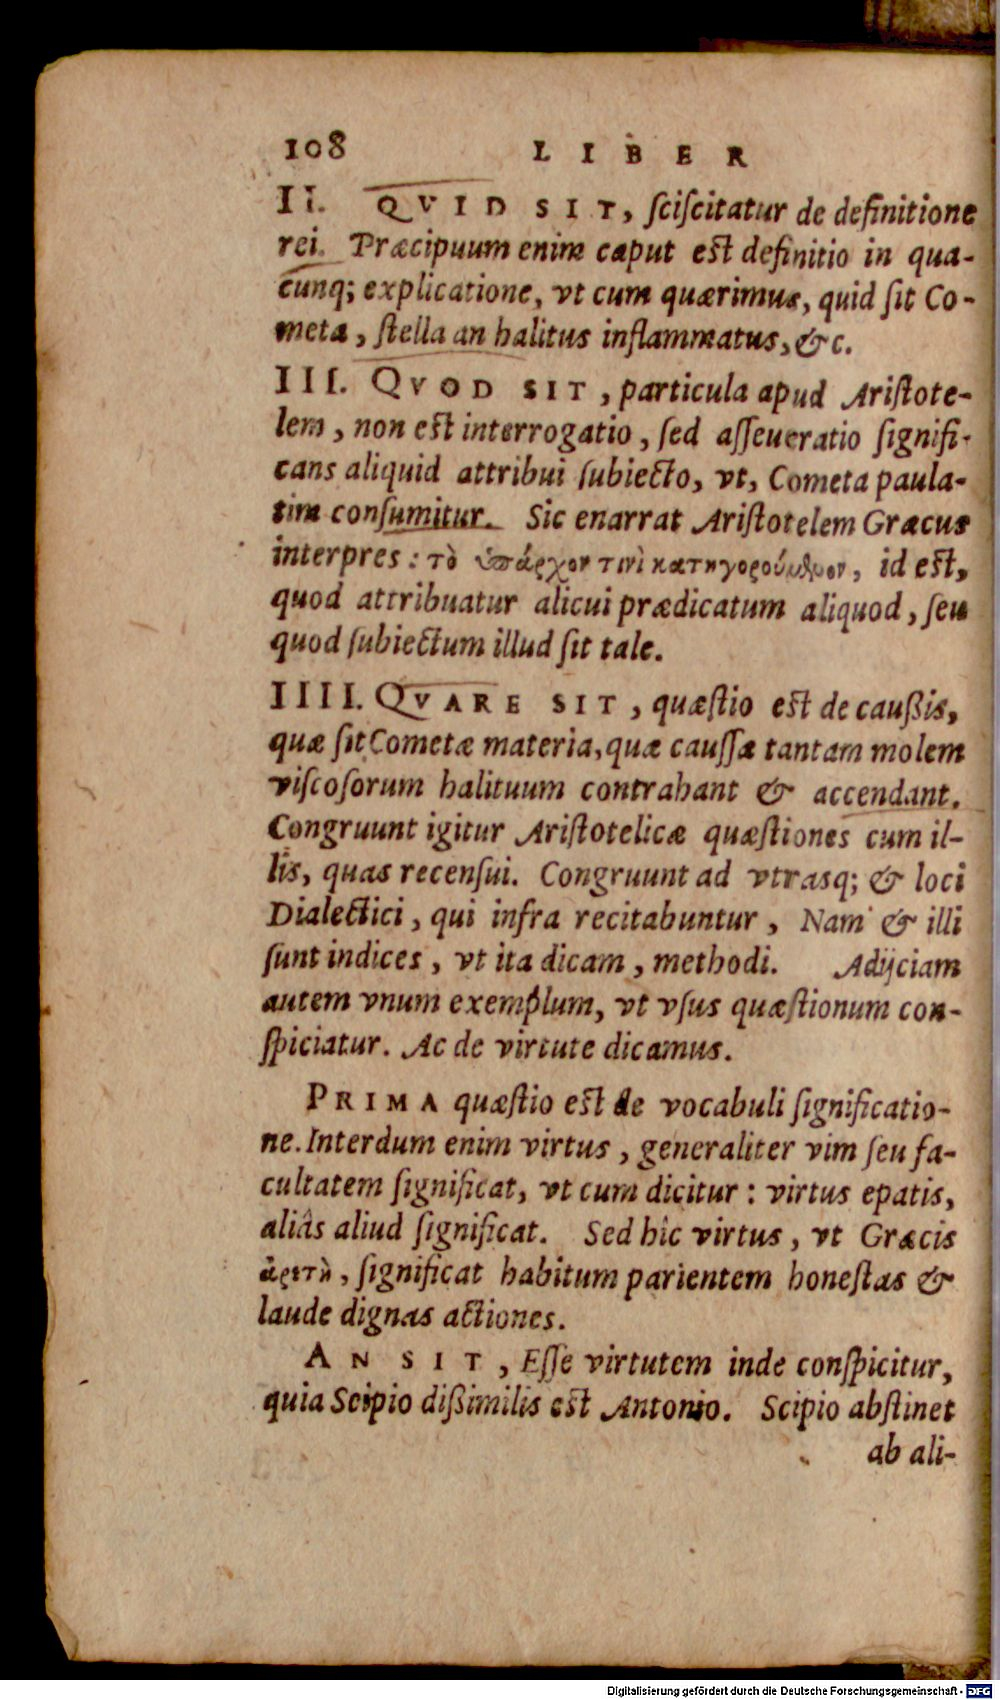 108 LIBER
II. QVID SIT, ſciſcitatur de definitione
rei. Præcipuum enim caput est definitio in qua-
cunq; explicatione, vt cum quærimus, quid ſit Co-
meta, ſtella an halitus inflammatus, &c.
III. QVOD SIT, particula apud Ariſtote-
lem, non est interrogatio, ſed aſſeueratio ſignifi-
cans aliquid attribui ſubiecto, vt, Cometa paula-
tim conſumitur. Sic enarrat Ariſtotelem Græcus
interpres: τὸ ὑπάρχον τινὶ κατηγορούμενον, id est,
quod attribuatur alicui prædicatum aliquod, ſeu
quod ſubiectum illud ſit tale.
IIII. QVARE SIT, quæſtio est de cauſſis,
quæ ſit Cometæ materia, quæ cauſſa tantam molem
viſcoſorum halituum contrahant & accendant.
Congruunt igitur Ariſtotelicæ quæſtiones cum il-
lis, quas recenſui. Congruunt ad vtrasq; & loci
Dialectici, qui infra recitabuntur, Nam & illi
ſunt indices, vt ita dicam, methodi. Adijciam
autem vnum exemplum, vt vſus quæſtionum con-
ſpiciatur. Ac de virtute dicamus.
PRIMA quæſtio est de vocabuli ſignificatio-
ne. Interdum enim virtus, generaliter vim ſeu fa-
cultatem ſignificat, vt cum dicitur: virtus epatis,
aliâs aliud ſignificat. Sed hîc virtus, vt Græcis
ἀρετὴ, ſignificat habitum parientem honeſtas &
laude dignas actiones.
AN SIT, Eſſe virtutem inde conſpicitur,
quia Scipio diſſimilis est Antonio. Scipio abſtinet
ab ali-
Digitalisierung gefördert durch die Deutsche Forschungsgemeinschaft - DFG